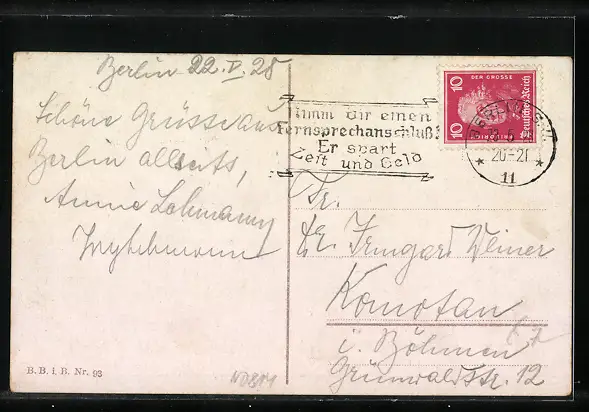 Berlin 22.V.28
Schöne Grüsse aus
Berlin allseits,
Annie Lohmann
Nimm Dir einen
Fernsprechanschluß!
Er spart
Zeit und Geld
10 DER GROSSE 10
Deutsches Reich
BERLIN
20-21
11
Fr.
Irmgard Weiner
Komotau
i. Böhmen
Grünwaldstr. 12
B. B. i. B. Nr. 93